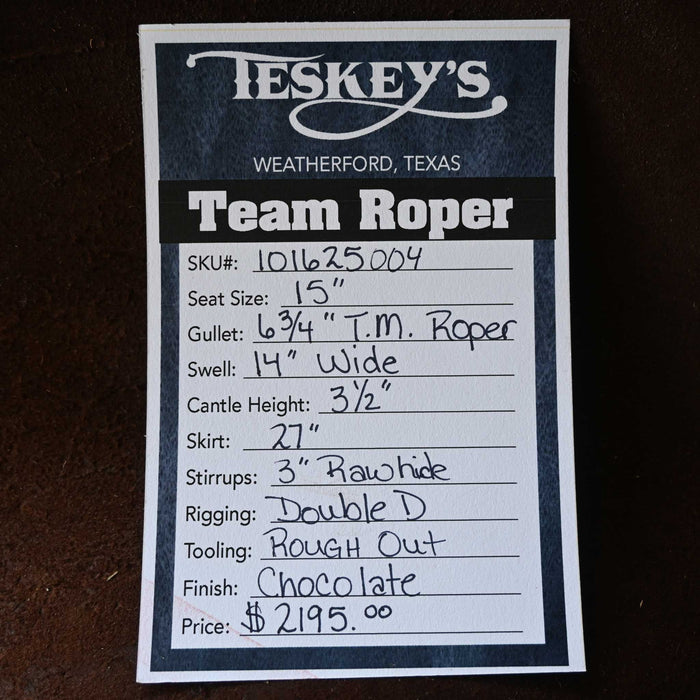 TESKEY'S
WEATHERFORD, TEXAS
Team Roper
SKU#: 101625004
Seat Size: 15"
Gullet: 6 3/4" T.M. Roper
Swell: 14" Wide
Cantle Height: 3 1/2"
Skirt: 27"
Stirrups: 3" Rawhide
Rigging: Double D
Tooling: ROUGH Out
Finish: Chocolate
Price: $2195.00